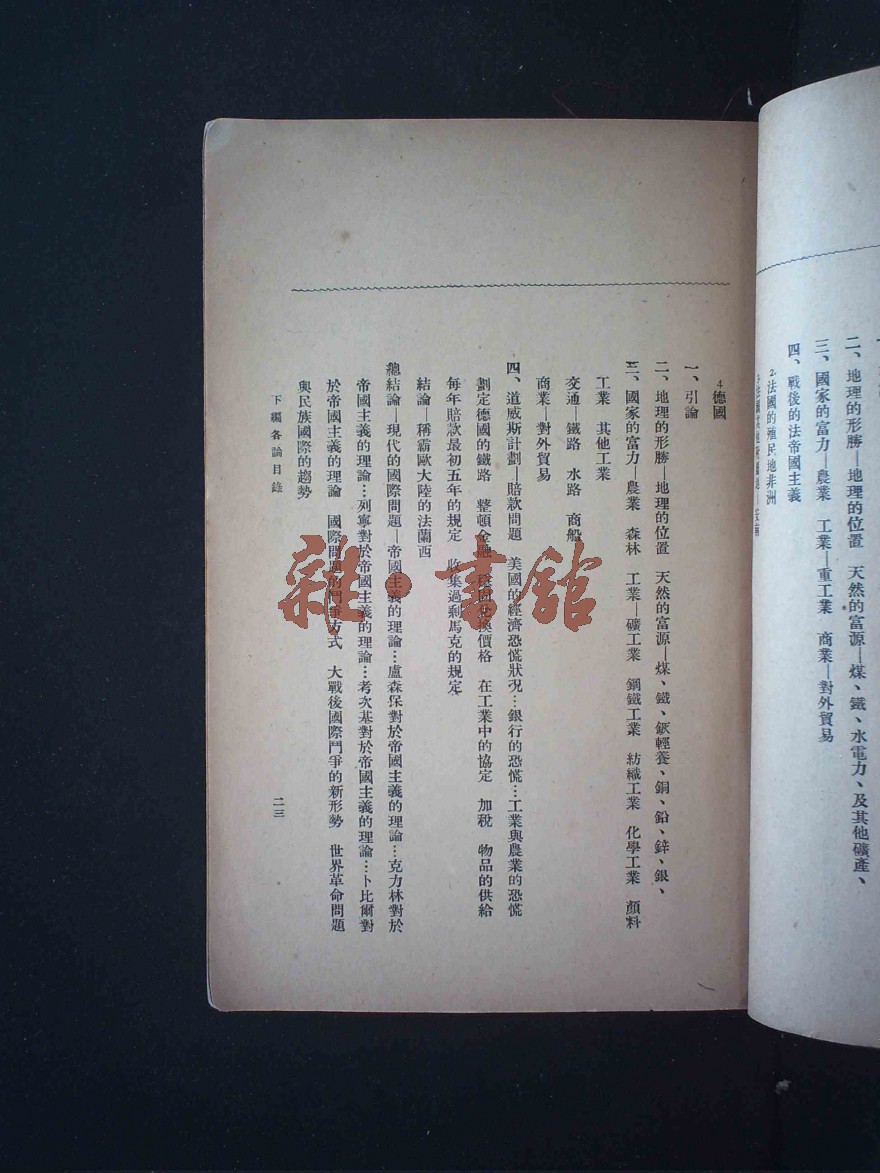 二、地理的形勝—地理的位置　天然的富源—煤、鐵、水電力、及其他礦產、
三、國家的富力—農業　工業—重工業　商業—對外貿易
四、戰後的法帝國主義
2.法國的殖民地非洲
4德國
一、引論
二、地理的形勝—地理的位置　天然的富源—煤、鐵、鉀輕養、銅、鉛、鋅、銀、
三、國家的富力—農業　森林　工業—礦工業　鋼鐵工業　紡織工業　化學工業　顏料
工業　其他工業
交通—鐵路　水路　商船
商業—對外貿易
四、道威斯計劃—賠款問題　美國的經濟恐慌狀況…銀行的恐慌…工業與農業的恐慌
劃定德國的鐵路　整頓金融　穩固兌換價格　在工業中的協定　加稅　物品的供給
每年賠款最初五年的規定　收集過剩馬克的規定
結論—稱霸歐大陸的法蘭西
總結論—現代的國際問題—帝國主義的理論…盧森堡對於帝國主義的理論…克力林對於
帝國主義的理論…列寧對於帝國主義的理論…考次基對於帝國主義的理論…卜比爾對
於帝國主義的理論　國際問題的鬥爭方式　大戰後國際鬥爭的新形勢　世界革命問題
與民族國際的趨勢
下編各論目錄
二三
雜·書館